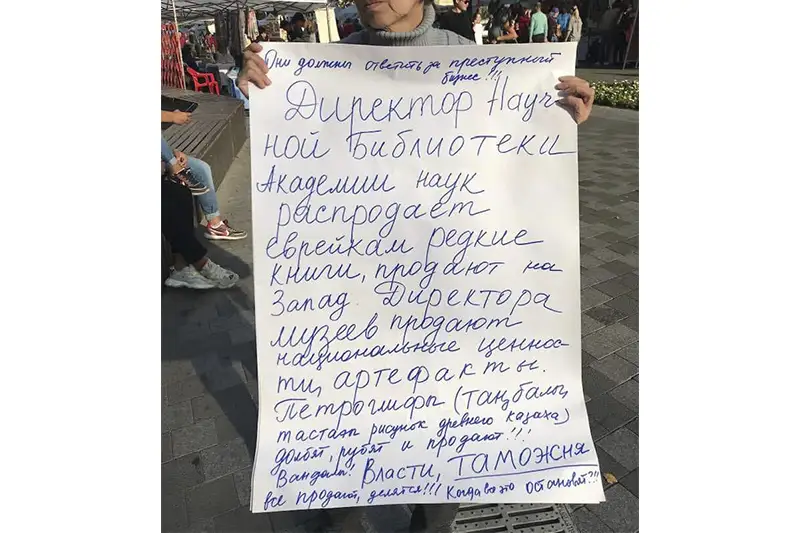 Они должны ответить за преступный
бизнес!!!
Директор Науч-
ной Библиотеки
Академии наук
распродает
еврейкам редкие
книги, продают на
Запад. Директора
музеев продают
национальные ценнос-
ти, артефакты.
Петроглифы (таңбалы,
тастағы рисунок древнего казаха)
долбят, рубят и продают!!!
Вандалы! Власти, таможня
все продают, делятся!!! Когда это остановят?!!